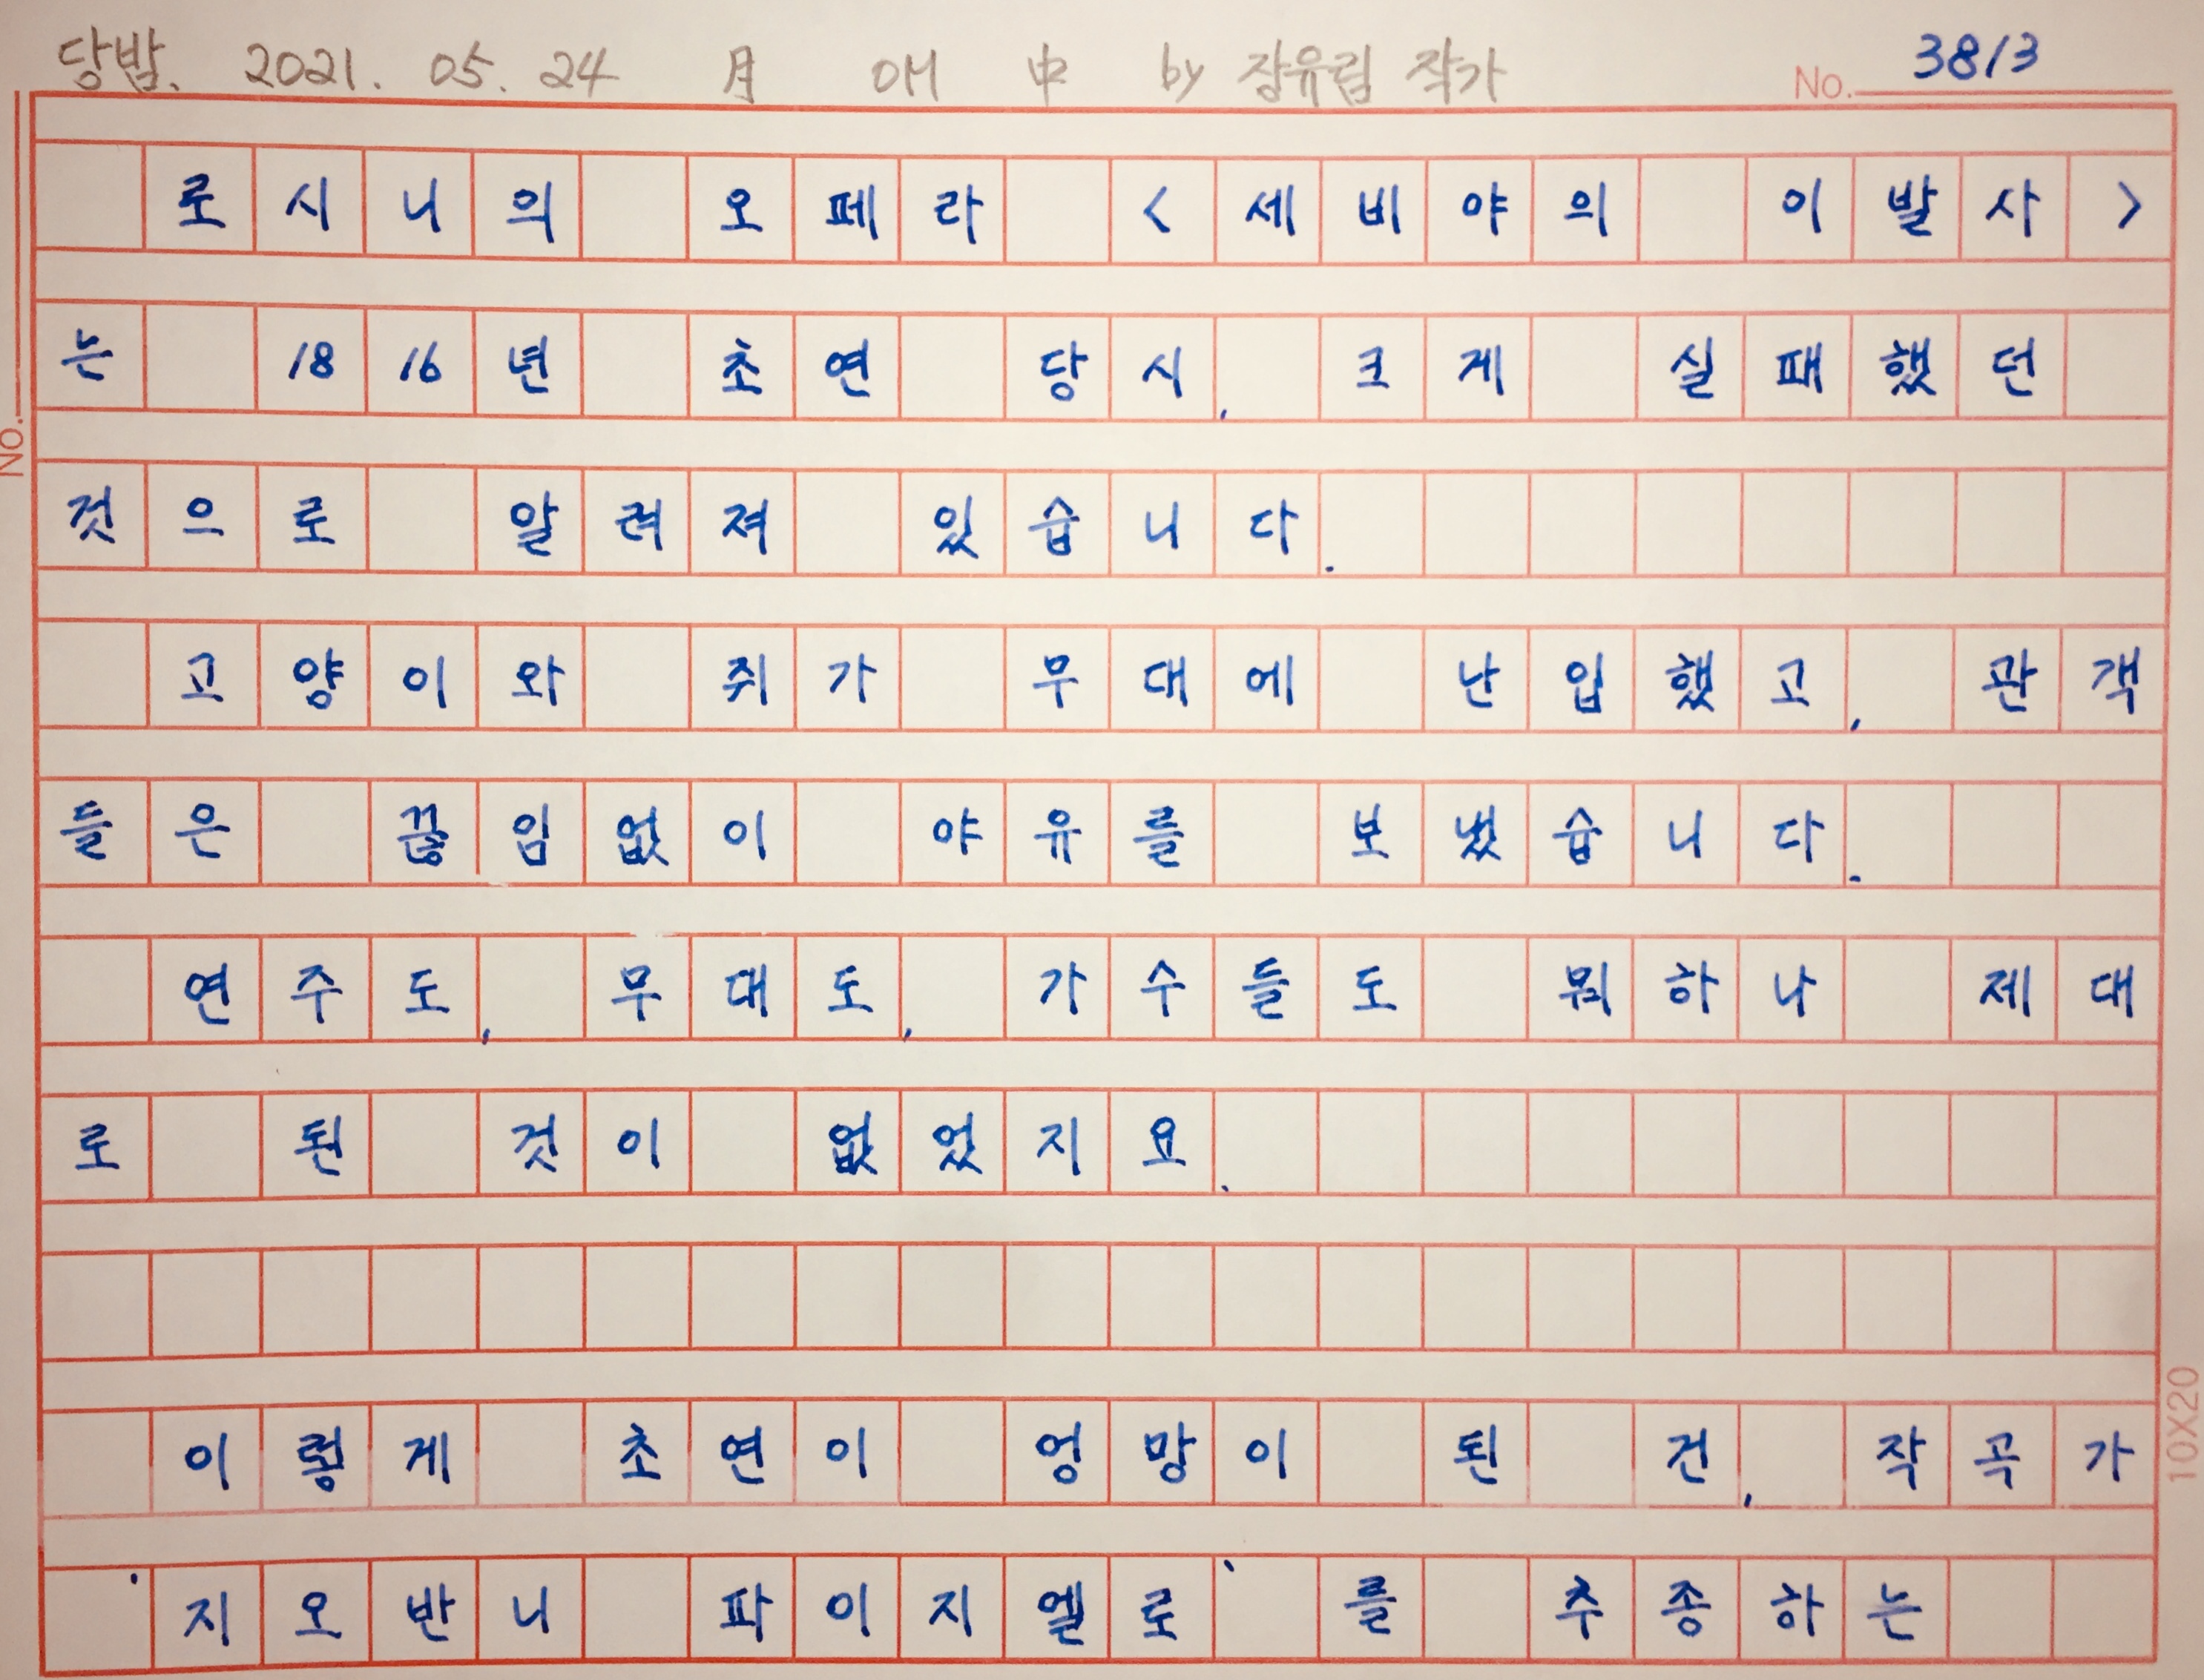 당밤. 2021. 05. 24 月 매 中 by 장유림 작가
No. 3813
로시니의 오페라 <세비야의 이발사>
는 1816년 초연 당시, 크게 실패했던
것으로 알려져 있습니다.
고양이와 쥐가 무대에 난입했고, 관객
들은 끊임없이 야유를 보냈습니다.
연주도, 무대도, 가수들도 뭐하나 제대
로 된 것이 없었지요.
이렇게 초연이 엉망이 된 건, 작곡가
'지오반니 파이지엘로'를 추종하는
No.
10X20